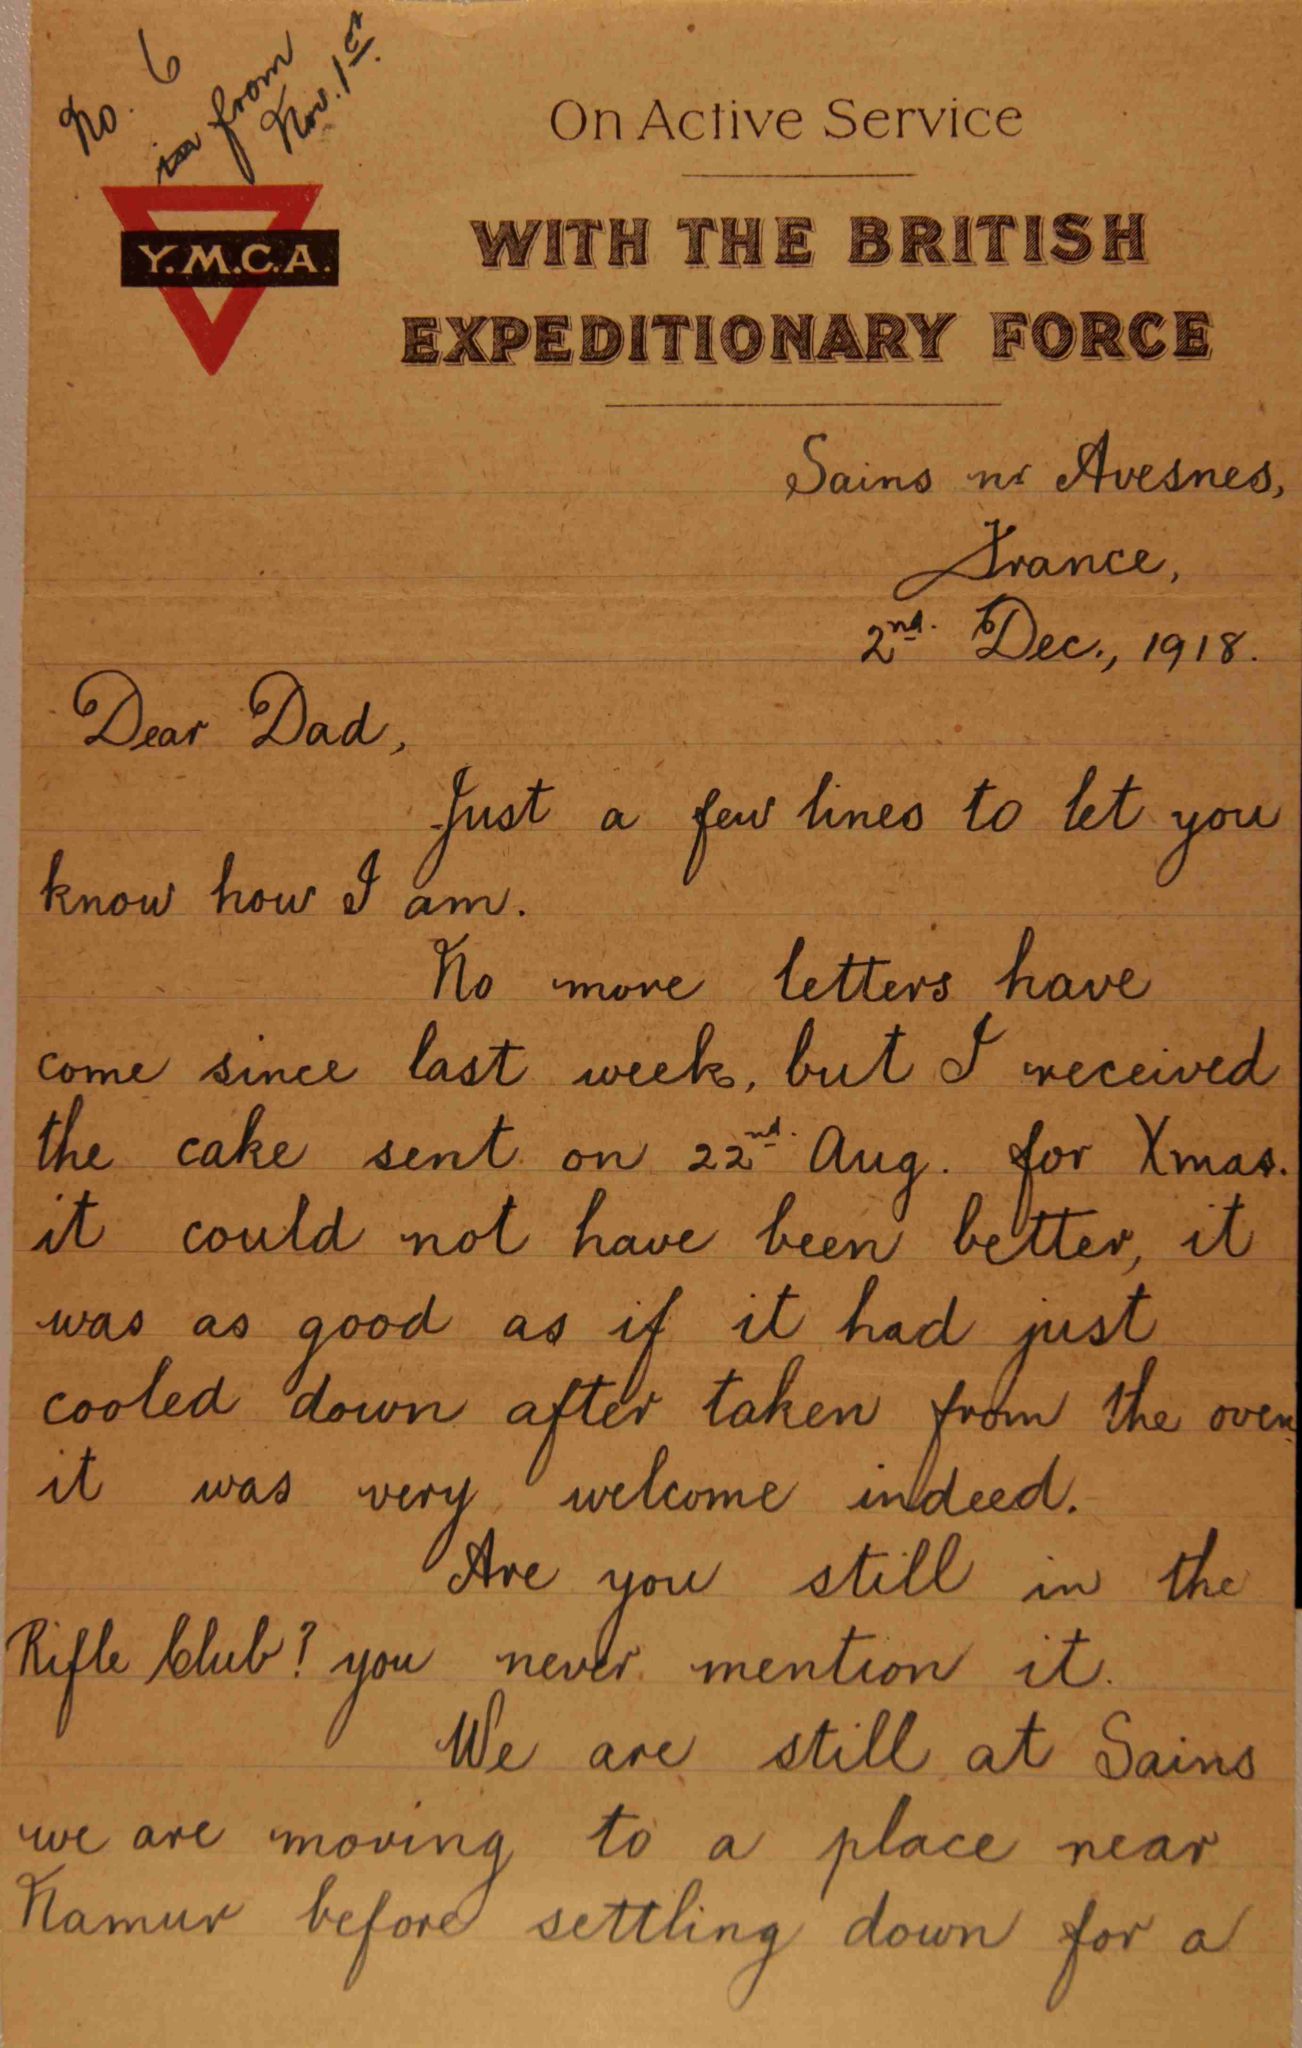 No. 6
from
Nov. 1st.
Y.M.C.A.
On Active Service
WITH THE BRITISH
EXPEDITIONARY FORCE
Sains nr Avesnes,
France,
2nd. Dec., 1918.
Dear Dad,
Just a few lines to let you
know how I am.
No more letters have
come since last week, but I received
the cake sent on 22nd. Aug. for Xmas.
it could not have been better, it
was as good as if it had just
cooled down after taken from the oven,
it was very welcome indeed.
Are you still in the
Rifle Club? you never mention it.
We are still at Sains
we are moving to a place near
Namur before settling down for a